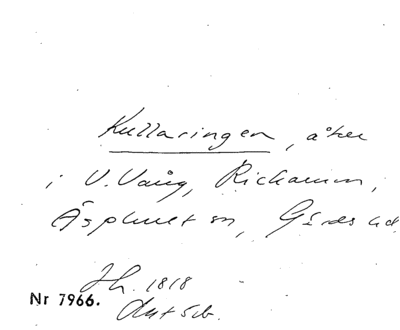 Kullaringen, åker
i V. Vång, Rickarum,
Äsphult sn, Gärds hd.
Jh. 1818
Nr 7966.